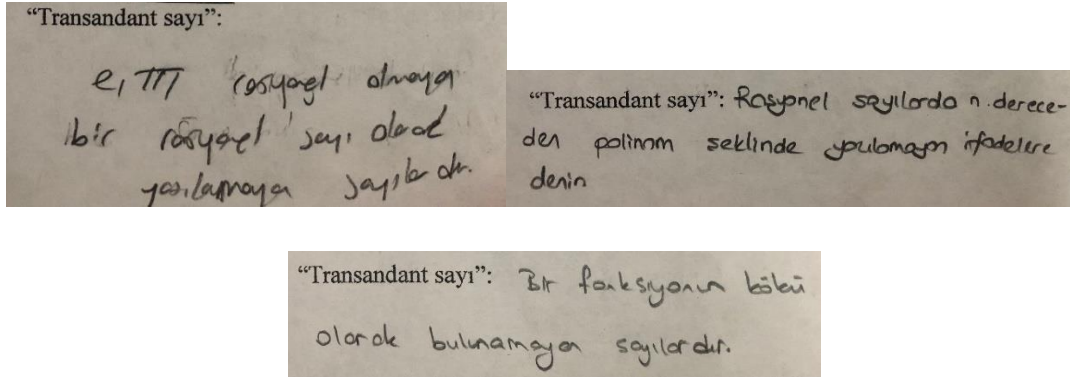 “Transandant sayı”:
e, π, rasyonel olmayan
bir rasyonel sayı olarak
yazılamayan sayılardır.
“Transandant sayı”: Rasyonel sayılarda n. derece-
den polinom şeklinde yazılamayan ifadelere
denir
“Transandant sayı”: Bir fonksiyonun kökü
olarak bulunamayan sayılardır.